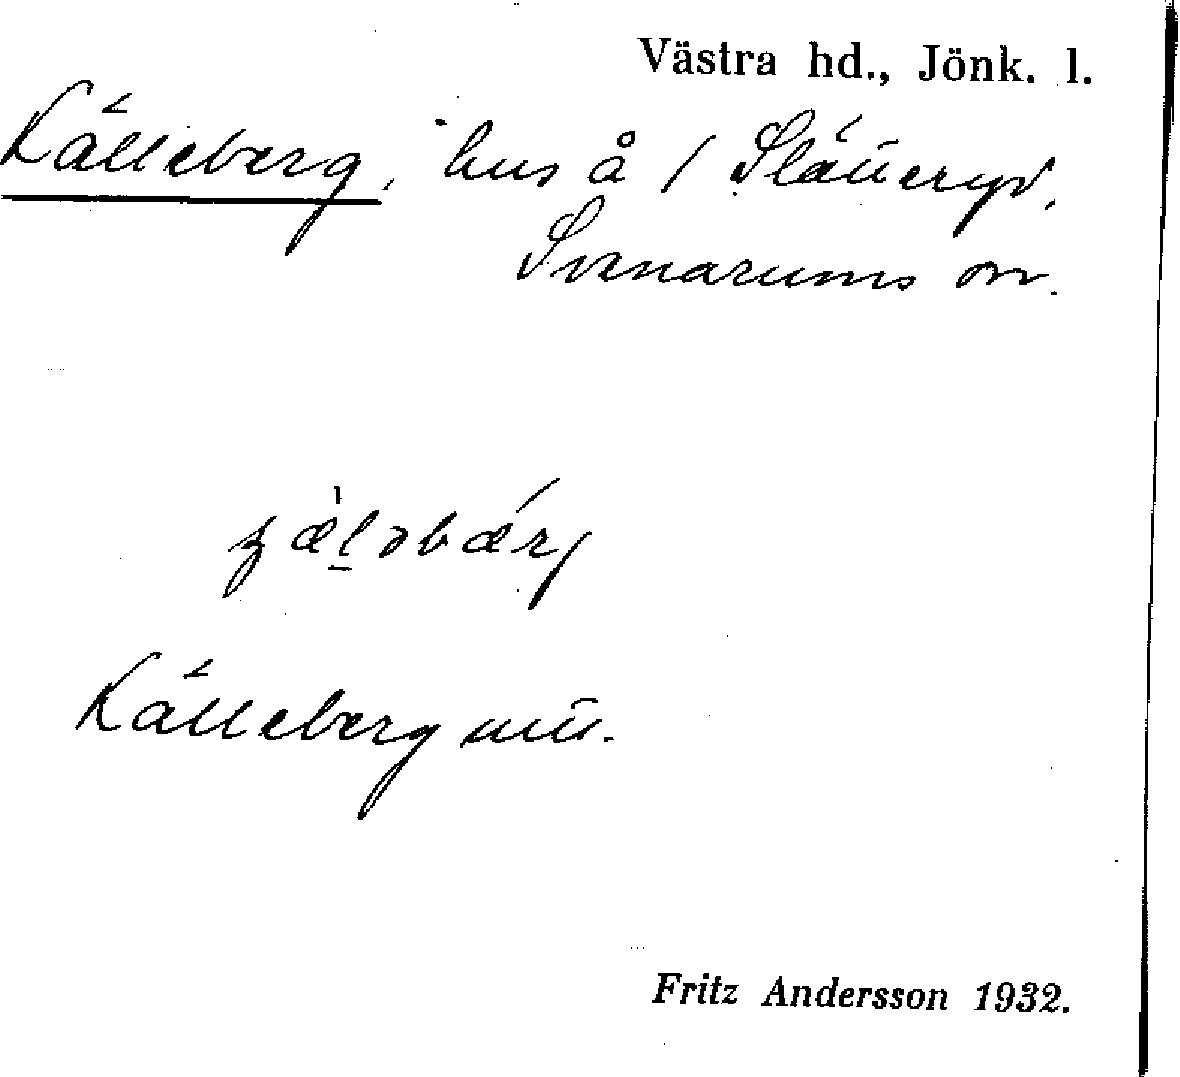 Västra hd., Jönk. l.
Källeberg, hus å / Slätteryd,
Svenarums sn.
Källeberg
Fritz Andersson 1932.